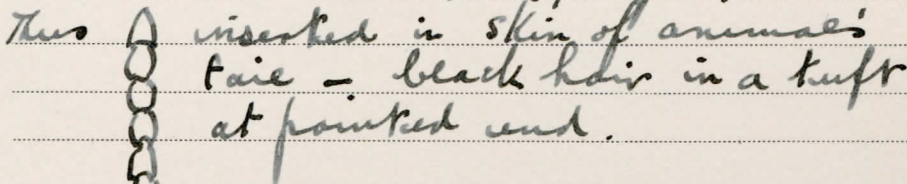 Thus inserted in skin of animal's
tail - black hair in a tuft
at pointed end.